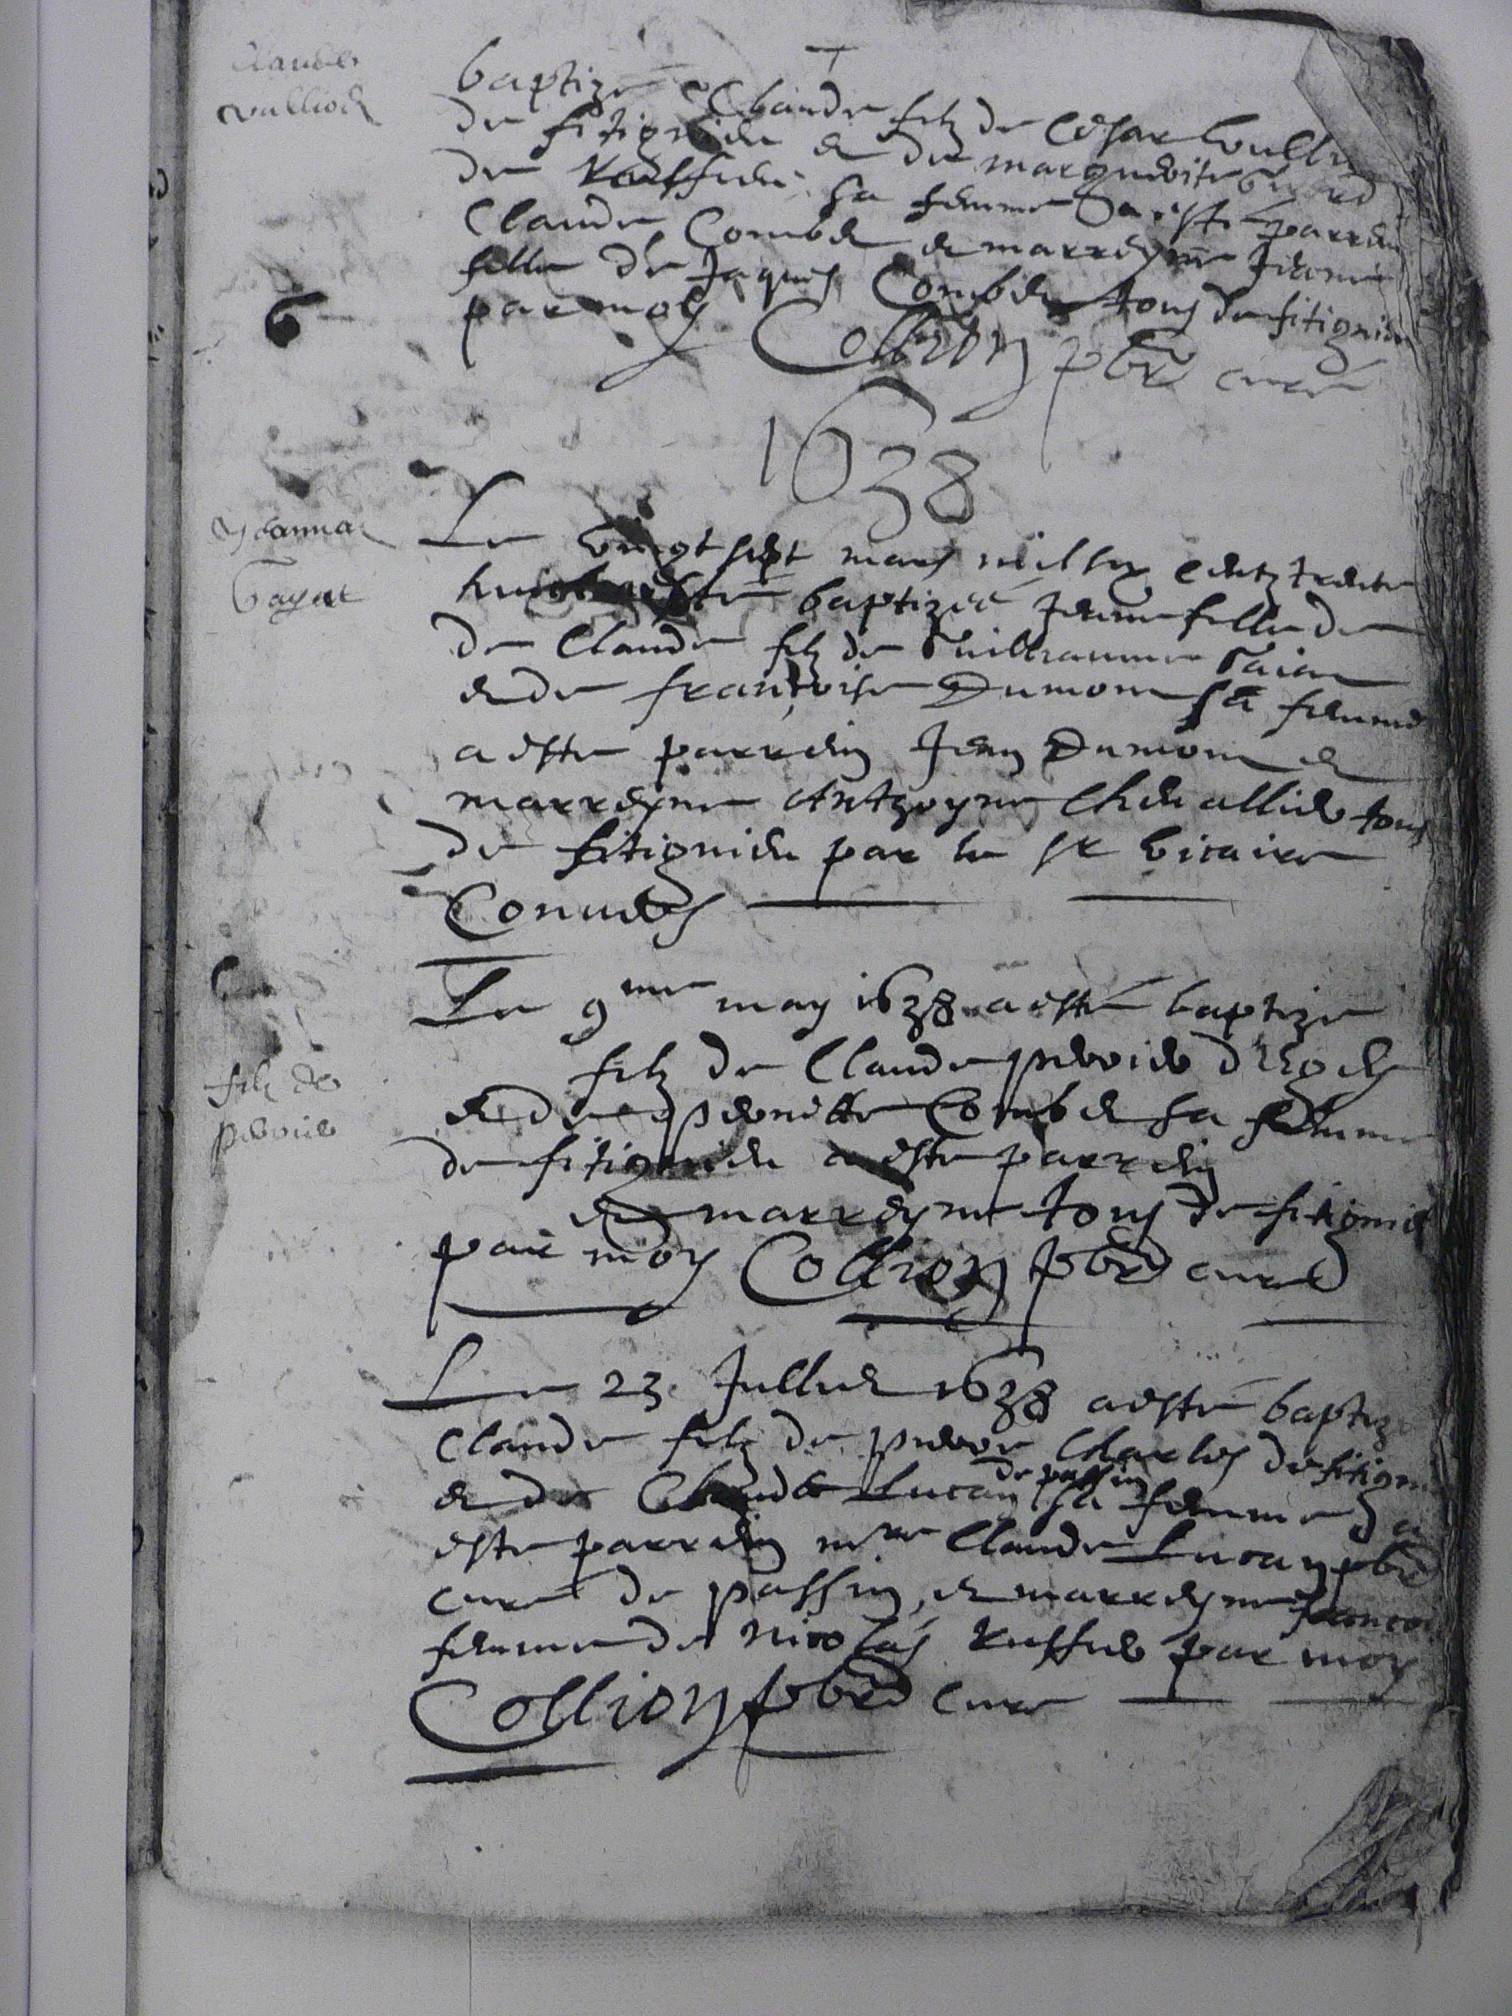 Claude
vulliod
baptize Claude filz de Cesar vulli
de fitignieu et de marguerite
de Ruffieu sa femme a esté parrein
Claude Combet et marreyne Jeanne
fille de Jaques Combet tous de fitignieu
par moy Collion pbre curé
1638
Johanna
Gayet
Le vingt sept mars mil six centz trente
huict a esté baptizeé Jeanne fille de
de Claude filz de Guillaume Gaiet
et de francoise Dumont sa femme
a esté parrein Jean Dumont et
marreyne Anthoyne Chevallier tous
de fitignieu par le sr vicaire
Convers
Le 9me may 1638 a esté baptize
filz de
pervier
filz de Claude pervier
et de pernette Combet sa femme
de fitignieu a esté parrein
et marreyne tous de fitignieu
par moy Collion pbre curé
Le 23 Jullet 1638 a esté baptizé
Claude filz de pierre Charles de fitignieu
et de Clauda Lucan de passin sa femme a
esté parrein mre Claude Lucan pbre
curé de passin, et marreyne francoi
femme de nicolas Ruffier par moy
Collion pbre curé